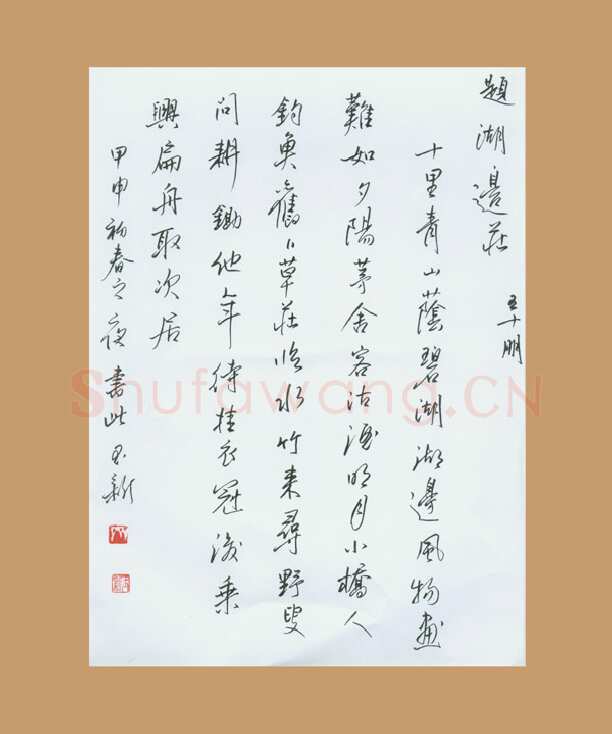 題湖邊莊
王十朋
十里青山蔭碧湖湖邊風物畫
難如夕陽茅舍客沽酒明月小橋人
釣魚舊卜草莊临水竹来尋野叟
問耕鋤他年待挂衣冠後乘
興扁舟取次居
甲申初春之夜書此新
Shufawang.CN